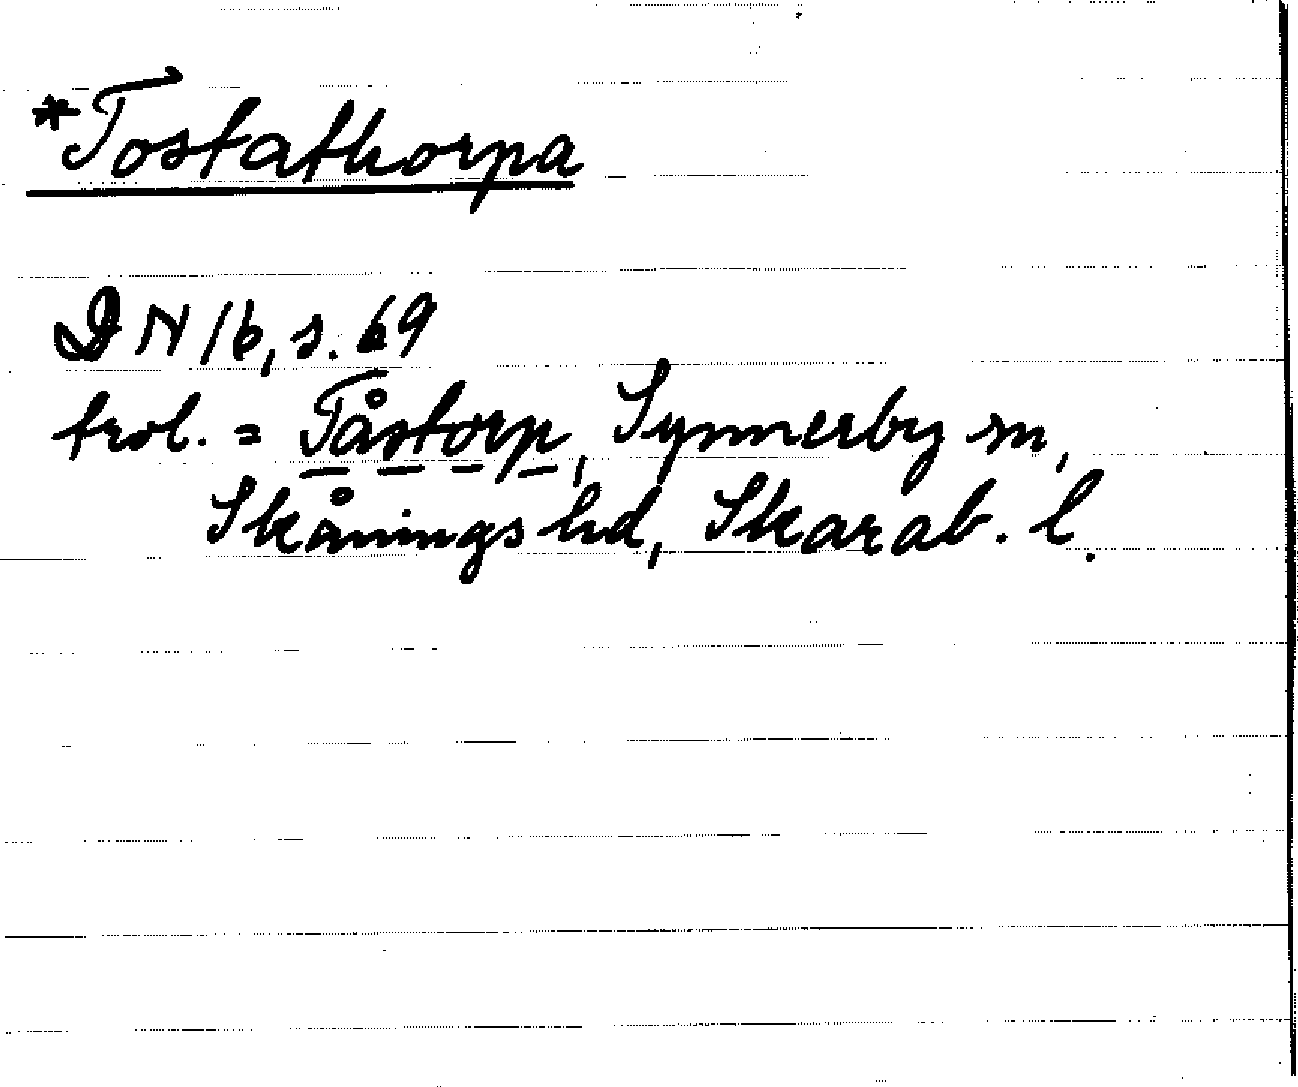 *Tostathorpa
DN 16, s. 69
trol. = Tåstorp, Synnerby sn,
Skånings hd, Skarab. l.